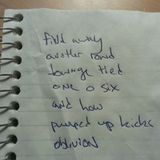 find away
another round
lounge tied
one o six
and how
pumped up kicks
oblivion